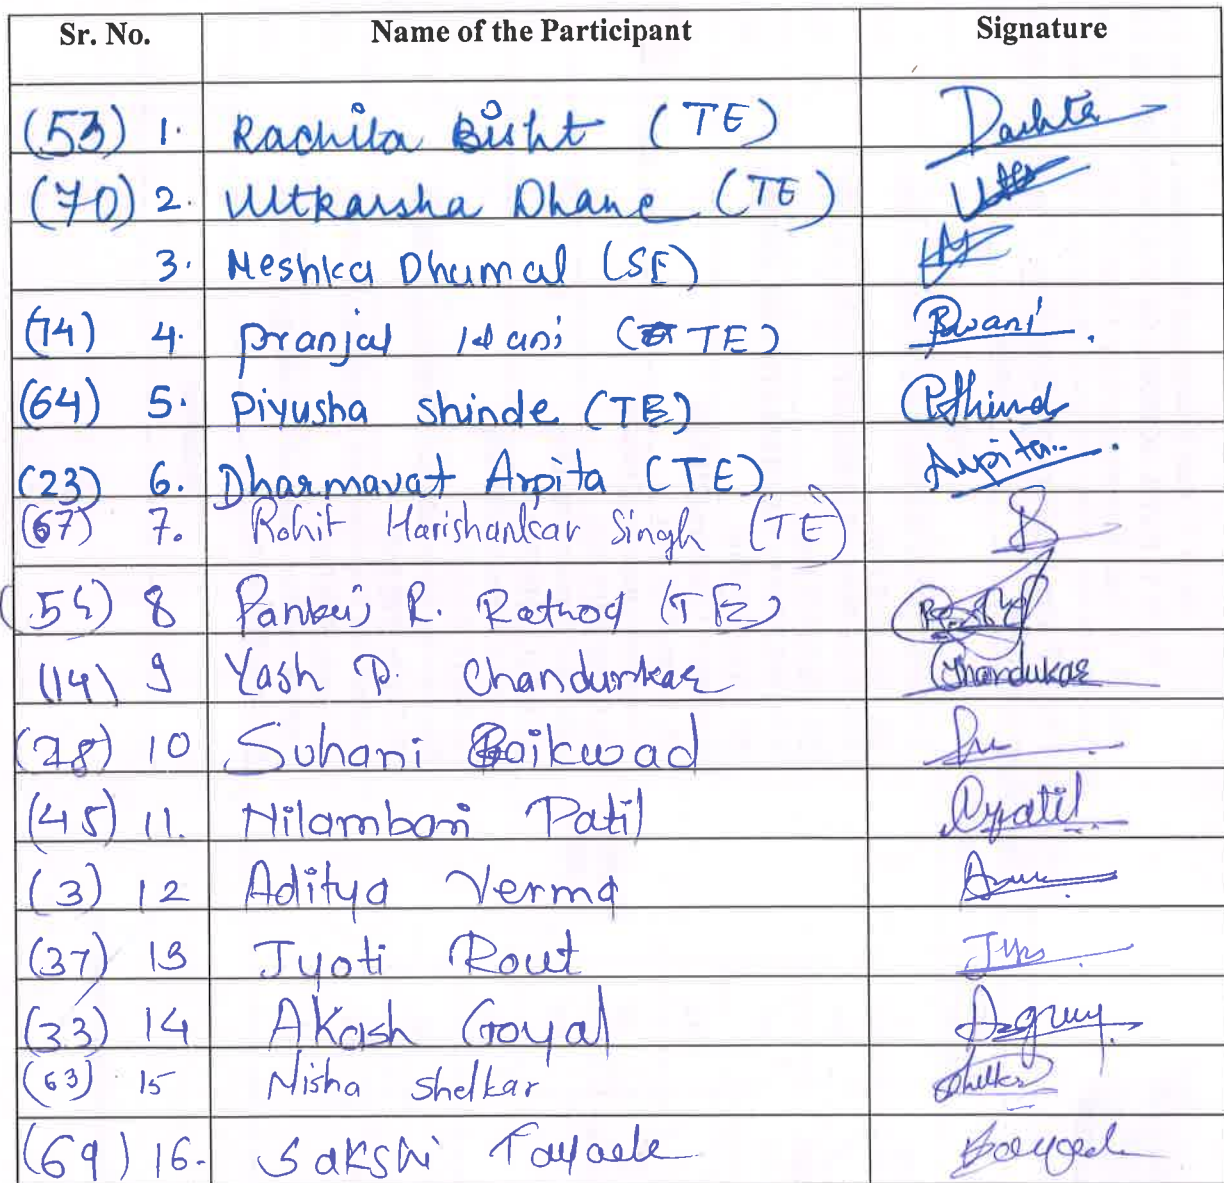 Sr. No. Name of the Participant Signature
(53) 1. Rachita Bisht (TE)
(70) 2. Utkarsha Dhane (TE)
3. Meshka Dhumal (SE)
(74) 4. Pranjal Wani (TE) Pwani
(64) 5. Piyusha shinde (TE) PShinde
(23) 6. Dharmavat Arpita (TE) Arpita
(67) 7. Rohit Harishankar Singh (TE)
8 Pankaj R. Rathod (TE)
(14) 9 Yash P. Chandurkar Chandukar
(28) 10 Suhani Gaikwad
(45) 11. Nilambari Patil
(3) 12 Aditya Verma
(37) 13 Jyoti Rout
(33) 14 Akash Goyal
(63) 15 Nisha Shelkar
(69) 16. Sakshi Tayade